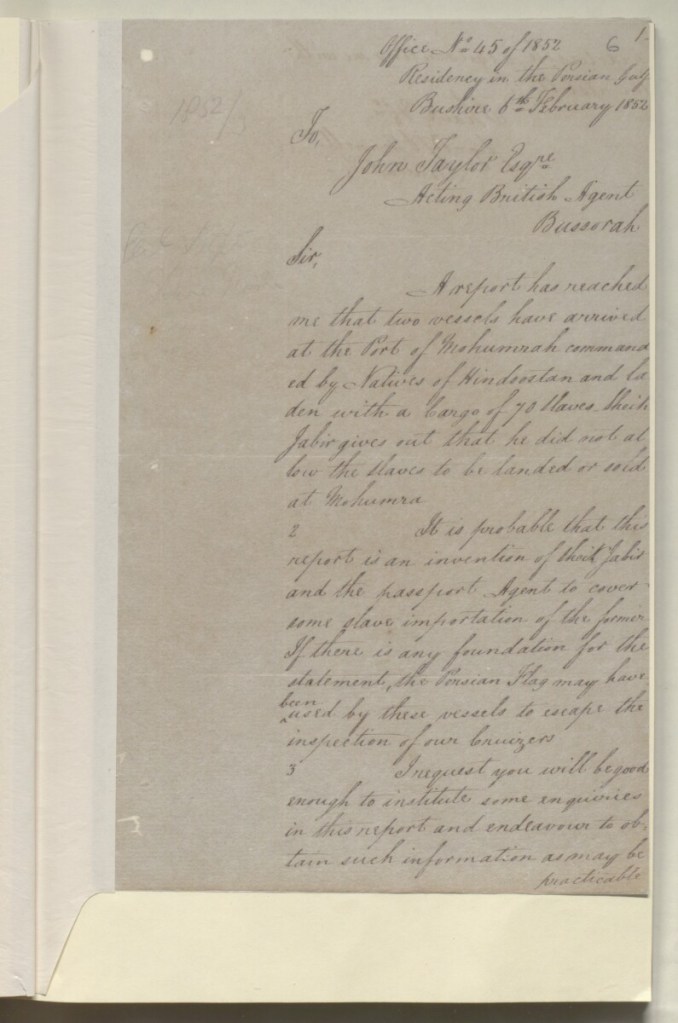 1
6
Office No 45 of 1852
Residency in the Persian Gulf
Bushire 6th February 1852
1852/
To,
John Taylor Esqre
Acting British Agent
Bussorah
Sir,
A report has reached
me that two vessels have arrived
at the Port of Mohumrah command
ed by Natives of Hindoostan and la
den with a Cargo of 70 Slaves. Sheik
Jabir gives out that he did not al
low the slaves to be landed or sold
at Mohumra
2 It is probable that this
report is an invention of Sheik Jabir
and the passport Agent to cover
some slave importation of the former
If there is any foundation for the
statement, the Persian Flag may have
been
^used by these vessels to escape the
inspection of our Cruizers
3 I request you will be good
enough to institute some enquiries
in this report and endeavour to ob-
tain such information as may be
practicable